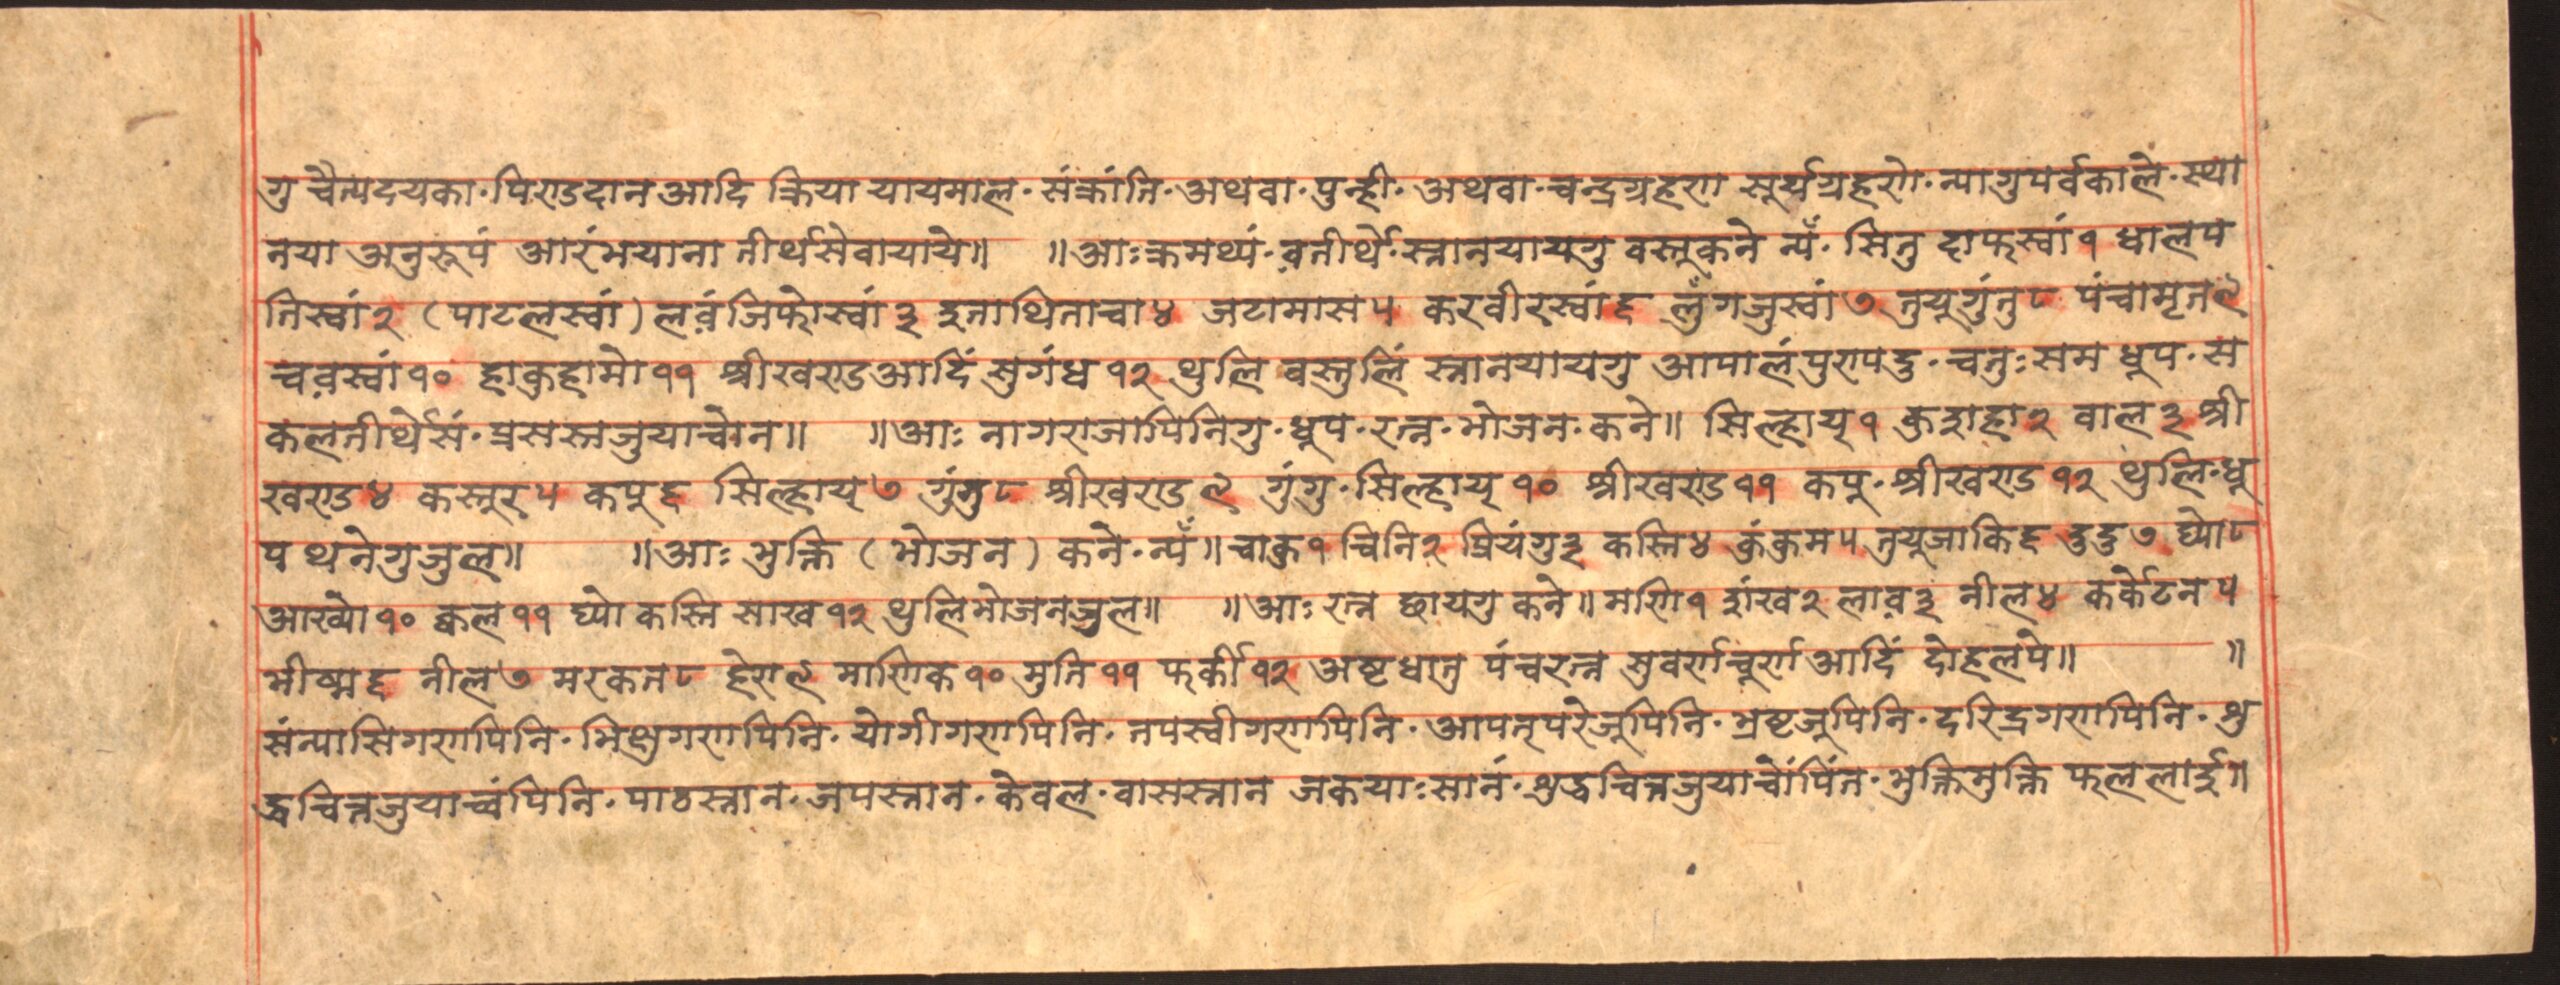 गु चैत्यदयका॰ पिण्डदान आदि क्रिया यायमाल॰ संक्रांति॰ अथवा॰ पुन्ही॰ अथवा॰ चन्द्रग्रहण सूर्यग्रहणे॰ न्यागु पर्वकाले॰ स्था
नया अनुरूपं आरंभयाना तीर्थसेवायाये॥ ॥आः क्रमथ्यं॰ व़तीर्थे॰ स्नानयायगु वस्तूकने न्यँ॰ सितु दाफस्वां १ धालप
तिस्वां २ (पाटलस्वां) लव़ंजिफोस्वां ३ इताथिताच्वा ४ जटामास ५ करवीरस्वां ६ लुँगजुस्वां ७ तुयूगुंतु ८ पंचामृत ९
चव़स्वां १० हाकुहामो ११ श्रीखण्डआदिं सुगंध १२ थुलि वस्तुलिं स्नानयायगु आपालं पुण्यदु॰ चतुःसम धूप॰ स
कलतीर्थेसं॰ प्रसस्तजुयाचोन॥ ॥आः नागराजापिनिगु॰ धूप॰ रत्न॰ भोजन॰ कने॥ सिल्हाय् १ कुशहा २ वाल ३ श्री
खण्ड ४ कस्तूर ५ कपू ६ सिल्हाय् ७ गुंतु ८ श्रीखण्ड ९ गुंगु॰ सिल्हाय् १० श्रीखण्ड ११ कपू॰ श्रीखण्ड १२ थुलि॰ धू
प थनेगुजुल॥ ॥आः भुक्ति (भोजन) कने॰ न्यँ॥ चाकु १ चिनि २ प्रियंगु ३ कस्ति ४ कुंकुम ५ तुयूजाकि ६ दुदु ७ घ्यो ८
आख्यो १० क्वल ११ घ्यो कस्ति साख १२ थुलिभोजनजुल॥ ॥आः रत्न छायगु कने॥ मणि १ शंख २ लाव़ ३ नील ४ कर्केटन ५
भीष्म ६ नील ७ मरकत ८ हेरा ९ माणिक १० मुति ११ फर्की १२ अष्टधातु पंचरत्न सुवर्णचूर्णआदिं दोहलपे॥ ॥
संन्यासिगणपिनि॰ भिक्षुगणपिनि॰ योगीगणपिनि॰ तपस्वीगणपिनि॰ आपत्परेजूपिनि॰ भ्रष्टजूपिनि॰ दरिद्रगणपिनि॰ शु
द्धचित्तजुयाच्वंपिनि॰ पाठस्नान॰ जपस्नान॰ केवल॰ वासस्नान जकयाःसानं॰ शुद्धचित्तजुयाचोंपिंत॰ भुक्तिमुक्ति फललाई॥